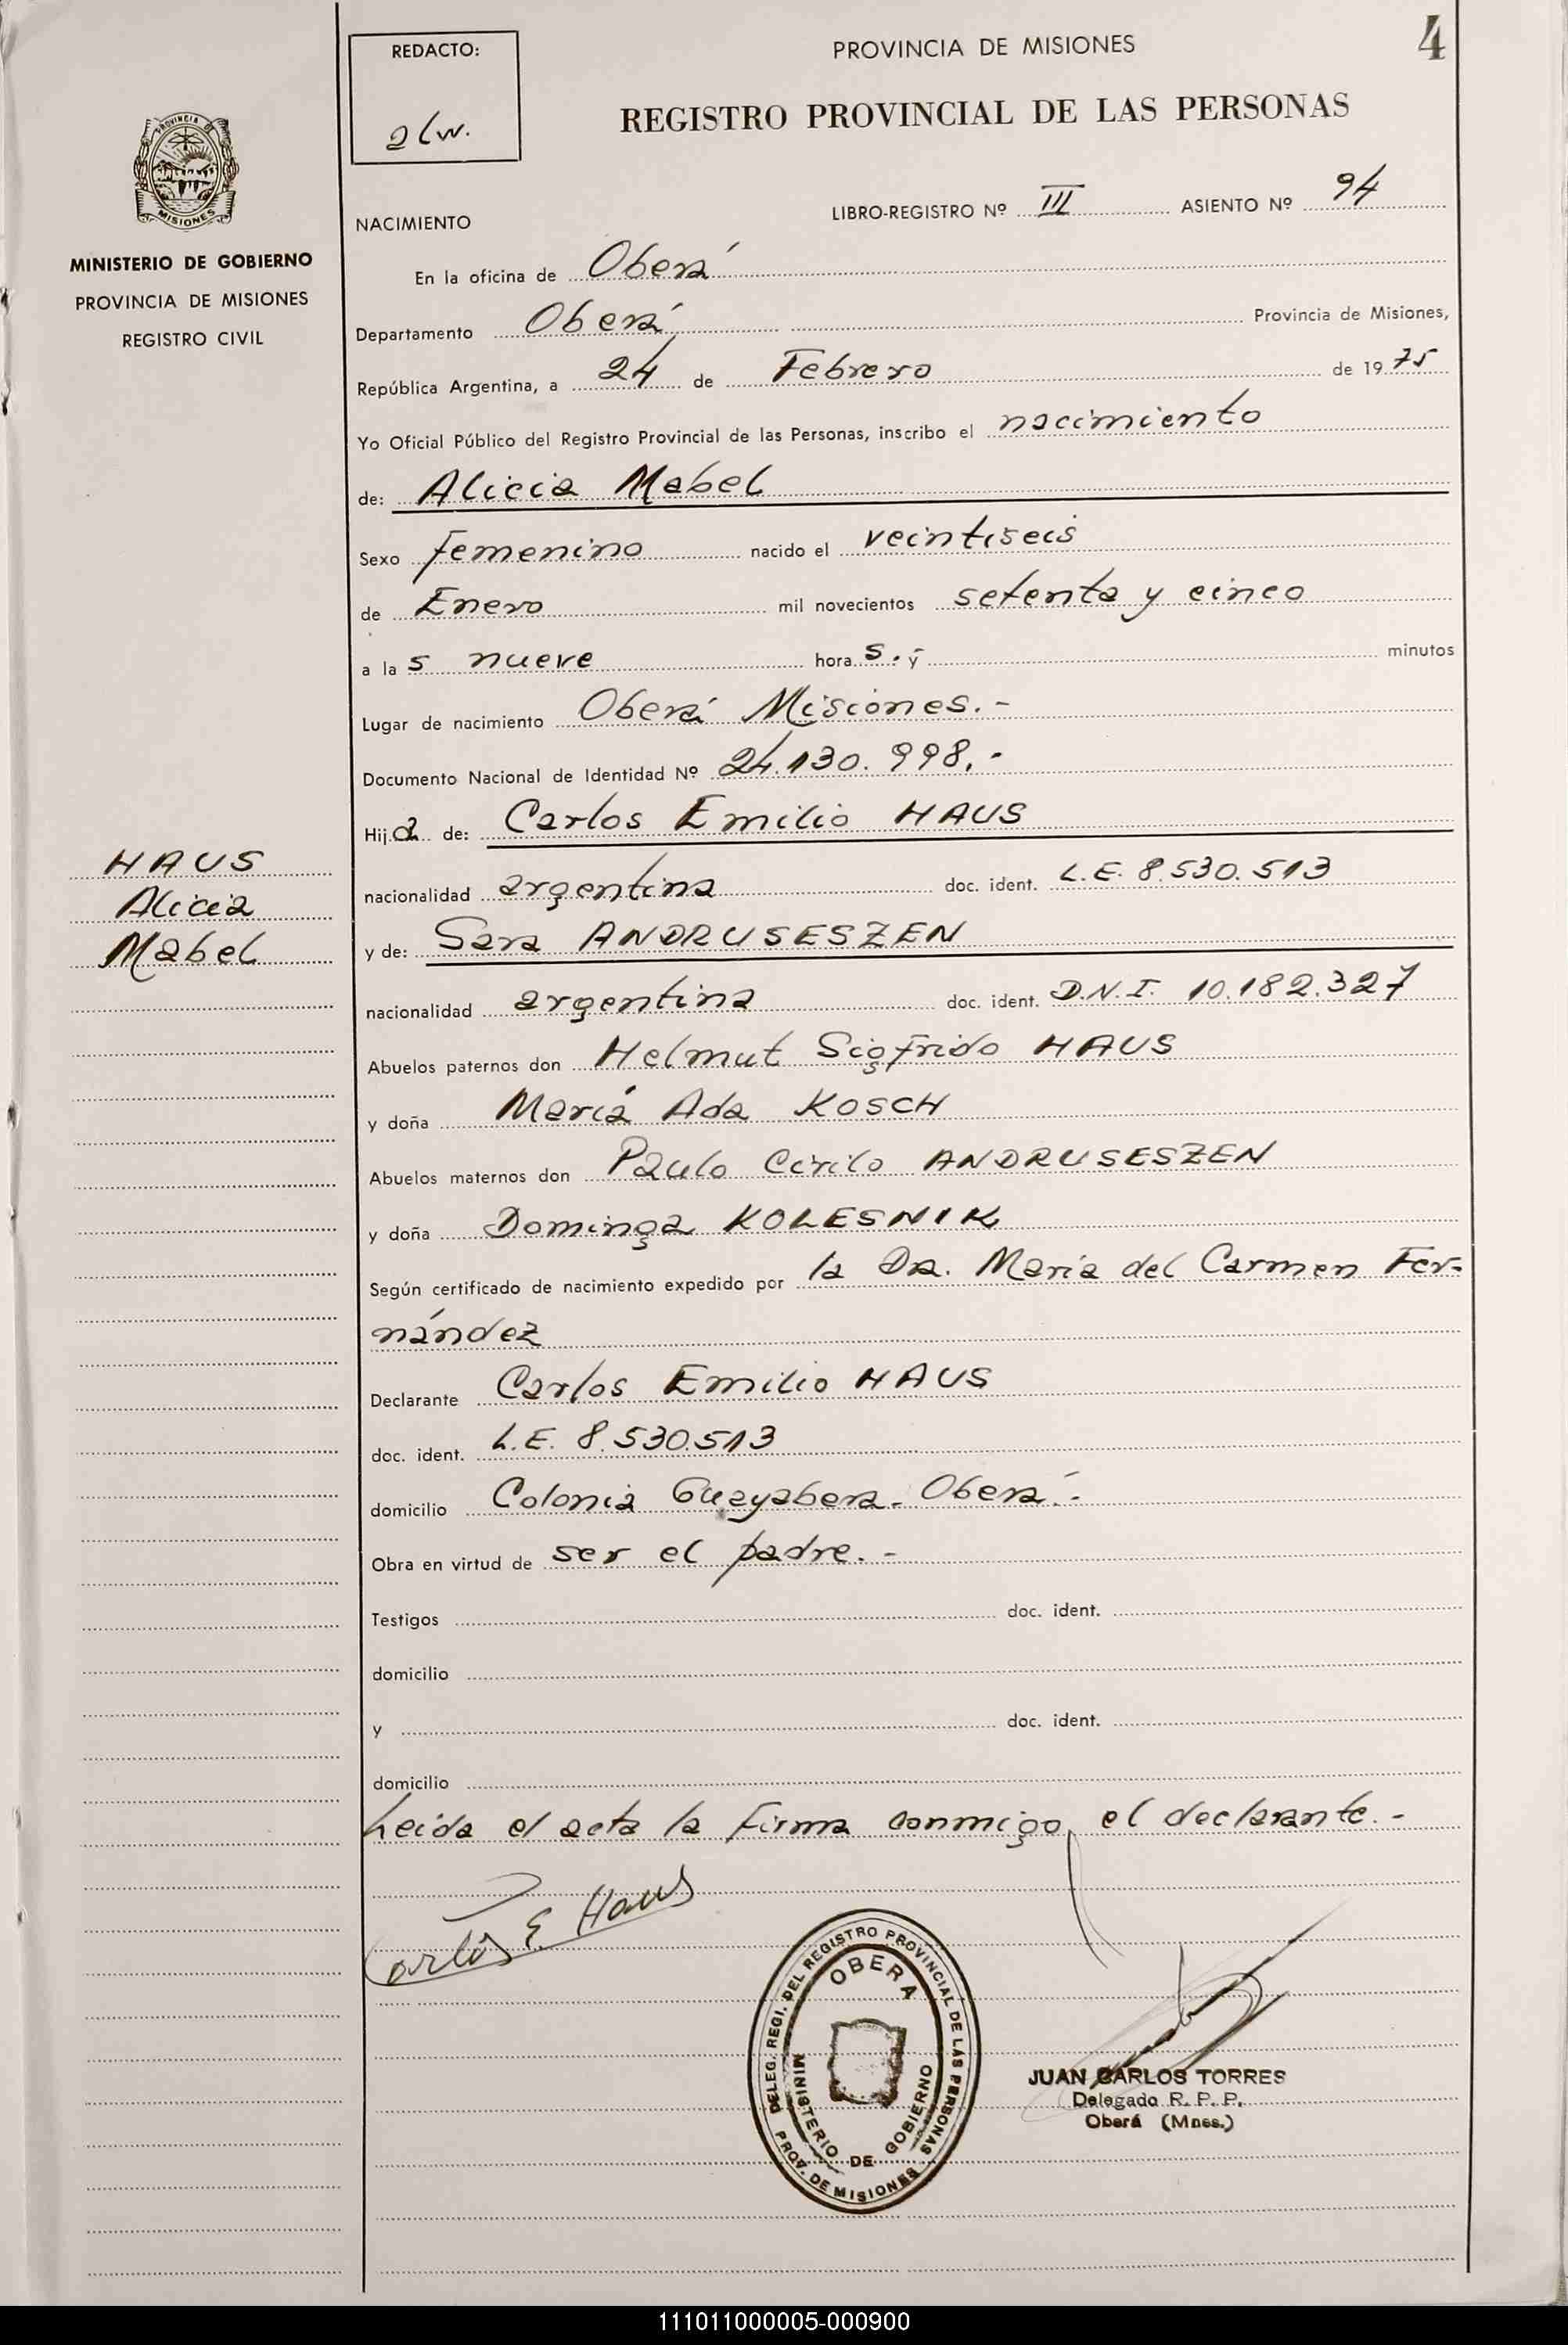 4
REDACTO:
alw.
PROVINCIA DE MISIONES
REGISTRO PROVINCIAL DE LAS PERSONAS
PROVINCIA DE
MISIONES
MINISTERIO DE GOBIERNO
PROVINCIA DE MISIONES
REGISTRO CIVIL
NACIMIENTO
LIBRO-REGISTRO Nº III ASIENTO Nº 94
En la oficina de Oberá
Departamento Oberá Provincia de Misiones,
República Argentina, a 24 de Febrero de 1975
Yo Oficial Público del Registro Provincial de las Personas, inscribo el nacimiento
de: Alicia Mabel
Sexo femenino nacido el veintiseis
de Enero mil novecientos setenta y cinco
a las nueve horas. y minutos
Lugar de nacimiento Oberá Misiones.-
Documento Nacional de Identidad Nº 24.130.998.-
Hija de: Carlos Emilio HAUS
HAUS
Alicia
Mabel
nacionalidad argentina doc. ident. L.E. 8.530.513
y de: Sara ANDRUSESZEN
nacionalidad argentina doc. ident. D.N.I. 10.182.327
Abuelos paternos don Helmut Sigfrido HAUS
y doña María Ada KOSCH
Abuelos maternos don Paulo Cirilo ANDRUSESZEN
y doña Dominga KOLESNIK
Según certificado de nacimiento expedido por la Dra. María del Carmen Fer-
nández
Declarante Carlos Emilio HAUS
doc. ident. L.E. 8.530.513
domicilio Colonia Guayabera- Oberá.-
Obra en virtud de ser el padre.-
Testigos doc. ident.
domicilio
y doc. ident.
domicilio
Leida el acta la firma conmigo, el declarante.-
Carlos E. Haus
DELEG. REGI. DEL REGISTRO PROVINCIAL DE LAS PERSONAS
OBERA
MINISTERIO DE GOBIERNO
PROV. DE MISIONES
JUAN CARLOS TORRES
Delegado R. P. P.
Oberá (Mnes.)
111011000005-000900